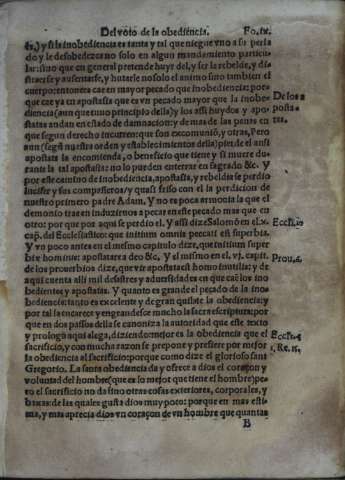 Del voto de la obediēcia. Fo. ix.
do y le desobedezca no solo en algun mandamiento particu
lar: sino que en general pretende huyr del, y ser la rebelde, y dis
traerse y ausentarse, y hurtarle no solo el animo sino tambien el
cuerpo: entonces cae en mayor pecado que inobediencia: por
que cae ya en apostasia que es vn pecado mayor que la inobe
diencia (aun que tuuo principio della) y los assi huydos y apos
tatas andan en estado de damnacion: y de mas de las penas en De los a
que segun derecho incurren: que son excomuniō, y otras, Pero posta
aun (segū nuestra orden y establecimientos della) pierde el ansi tas.
apostata la encomienda, o beneficio que tiene y si muere du
rante la tal apostasia: no lo pueden enterrar en sagrado &c. Y
por este camino de inobediencia, apostasia, y rebeldia se perdio
lucifer y sus compañeros/ y quasi se
nuestro primero padre Adam, Y no es poca armonia la que el
demonio trae en induzirnos a pecar en este pecado mas que en
otro: por que por aqui se perdio el. Y assi dize Salomō en el .x.
cap. del Ecclesiastico: que initium omnis peccati est superbia.
Y vn poco antes en el mesmo capitulo dize, que initium super
bie hominis: apostatare a deo &c, Y el mismo en el .vj. capit.
de los prouerbios dize, que vir apostata est homo inutilis: y de
aqui cuenta alli mil desastres y aduersidades en que caē los ino
bedientes y apostatas. Y quanto es grande el pecado de la ino
bediencia: tanto es excelente y de gran quilate la obediencia: y
por tal la encarece y engrandesce mucho la sacra escriptura: por
que en dos passos della se canoniza la autoridad que este texto
y prologo aqui alega, diziendo: mejor es la obediencia que el
sacrificio, y con mucha razon se prepone y prefiere por mejor
la obediencia al sacrificio: porque como dize el glorioso sant
Gregorio. La sacra obediencia da y ofrece a dios el coraçon y
voluntad del hombre (que es lo mejor que tiene el hombre) pe
ro el sacrificio no da sino otras cosas exteriores, corporales, y
baxas: de las quales gusta dios muy poco: porque en mas esti
ma, y mas aprecia dios vn coraçon de vn hombre que quantas
B